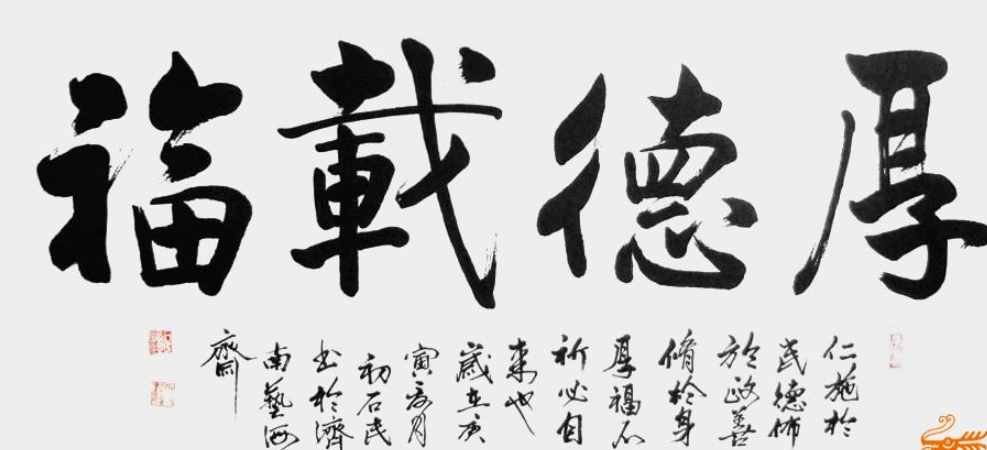 厚德載福
仁施於
民德佈
於政善
脩於身
厚福不
祈必自
來也
歲在庚
寅夏月
初石民
書於濟
南藝海
齋